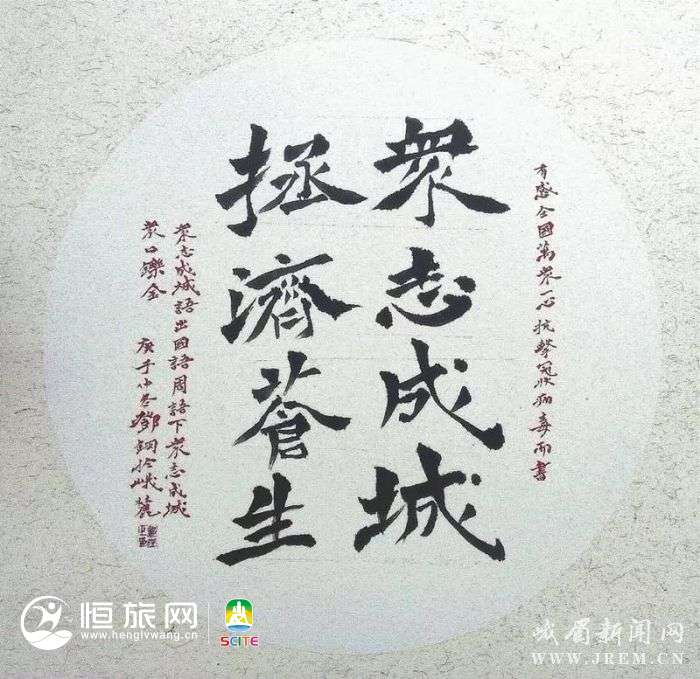 有感全國萬衆一心抗擊冠狀病毒而書
衆志成城
拯濟蒼生
衆志成城語出國語周語下衆志成城
衆口鑠金
庚子仲冬鄧鋼於峨麓
恒旅网
www.henglvwang.cn
SCITE
峨眉新闻网
WWW.JREM.CN